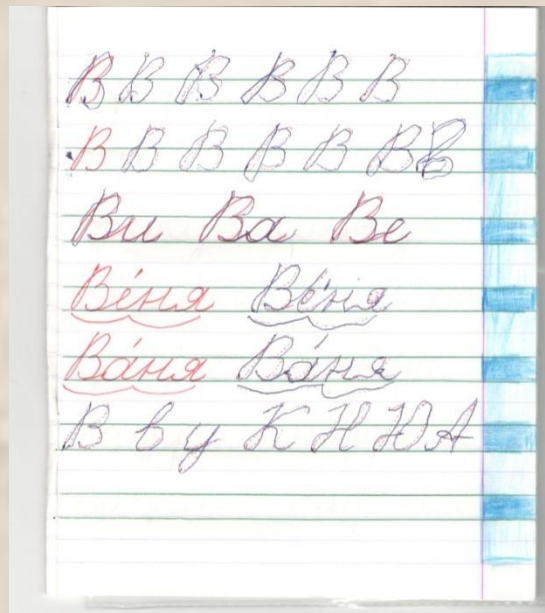 В В В В В В
В В В В В В В
Ви Ва Ве
Ве́ня Ве́ня
Ва́ня Ва́ня
В в у К Н Ю А